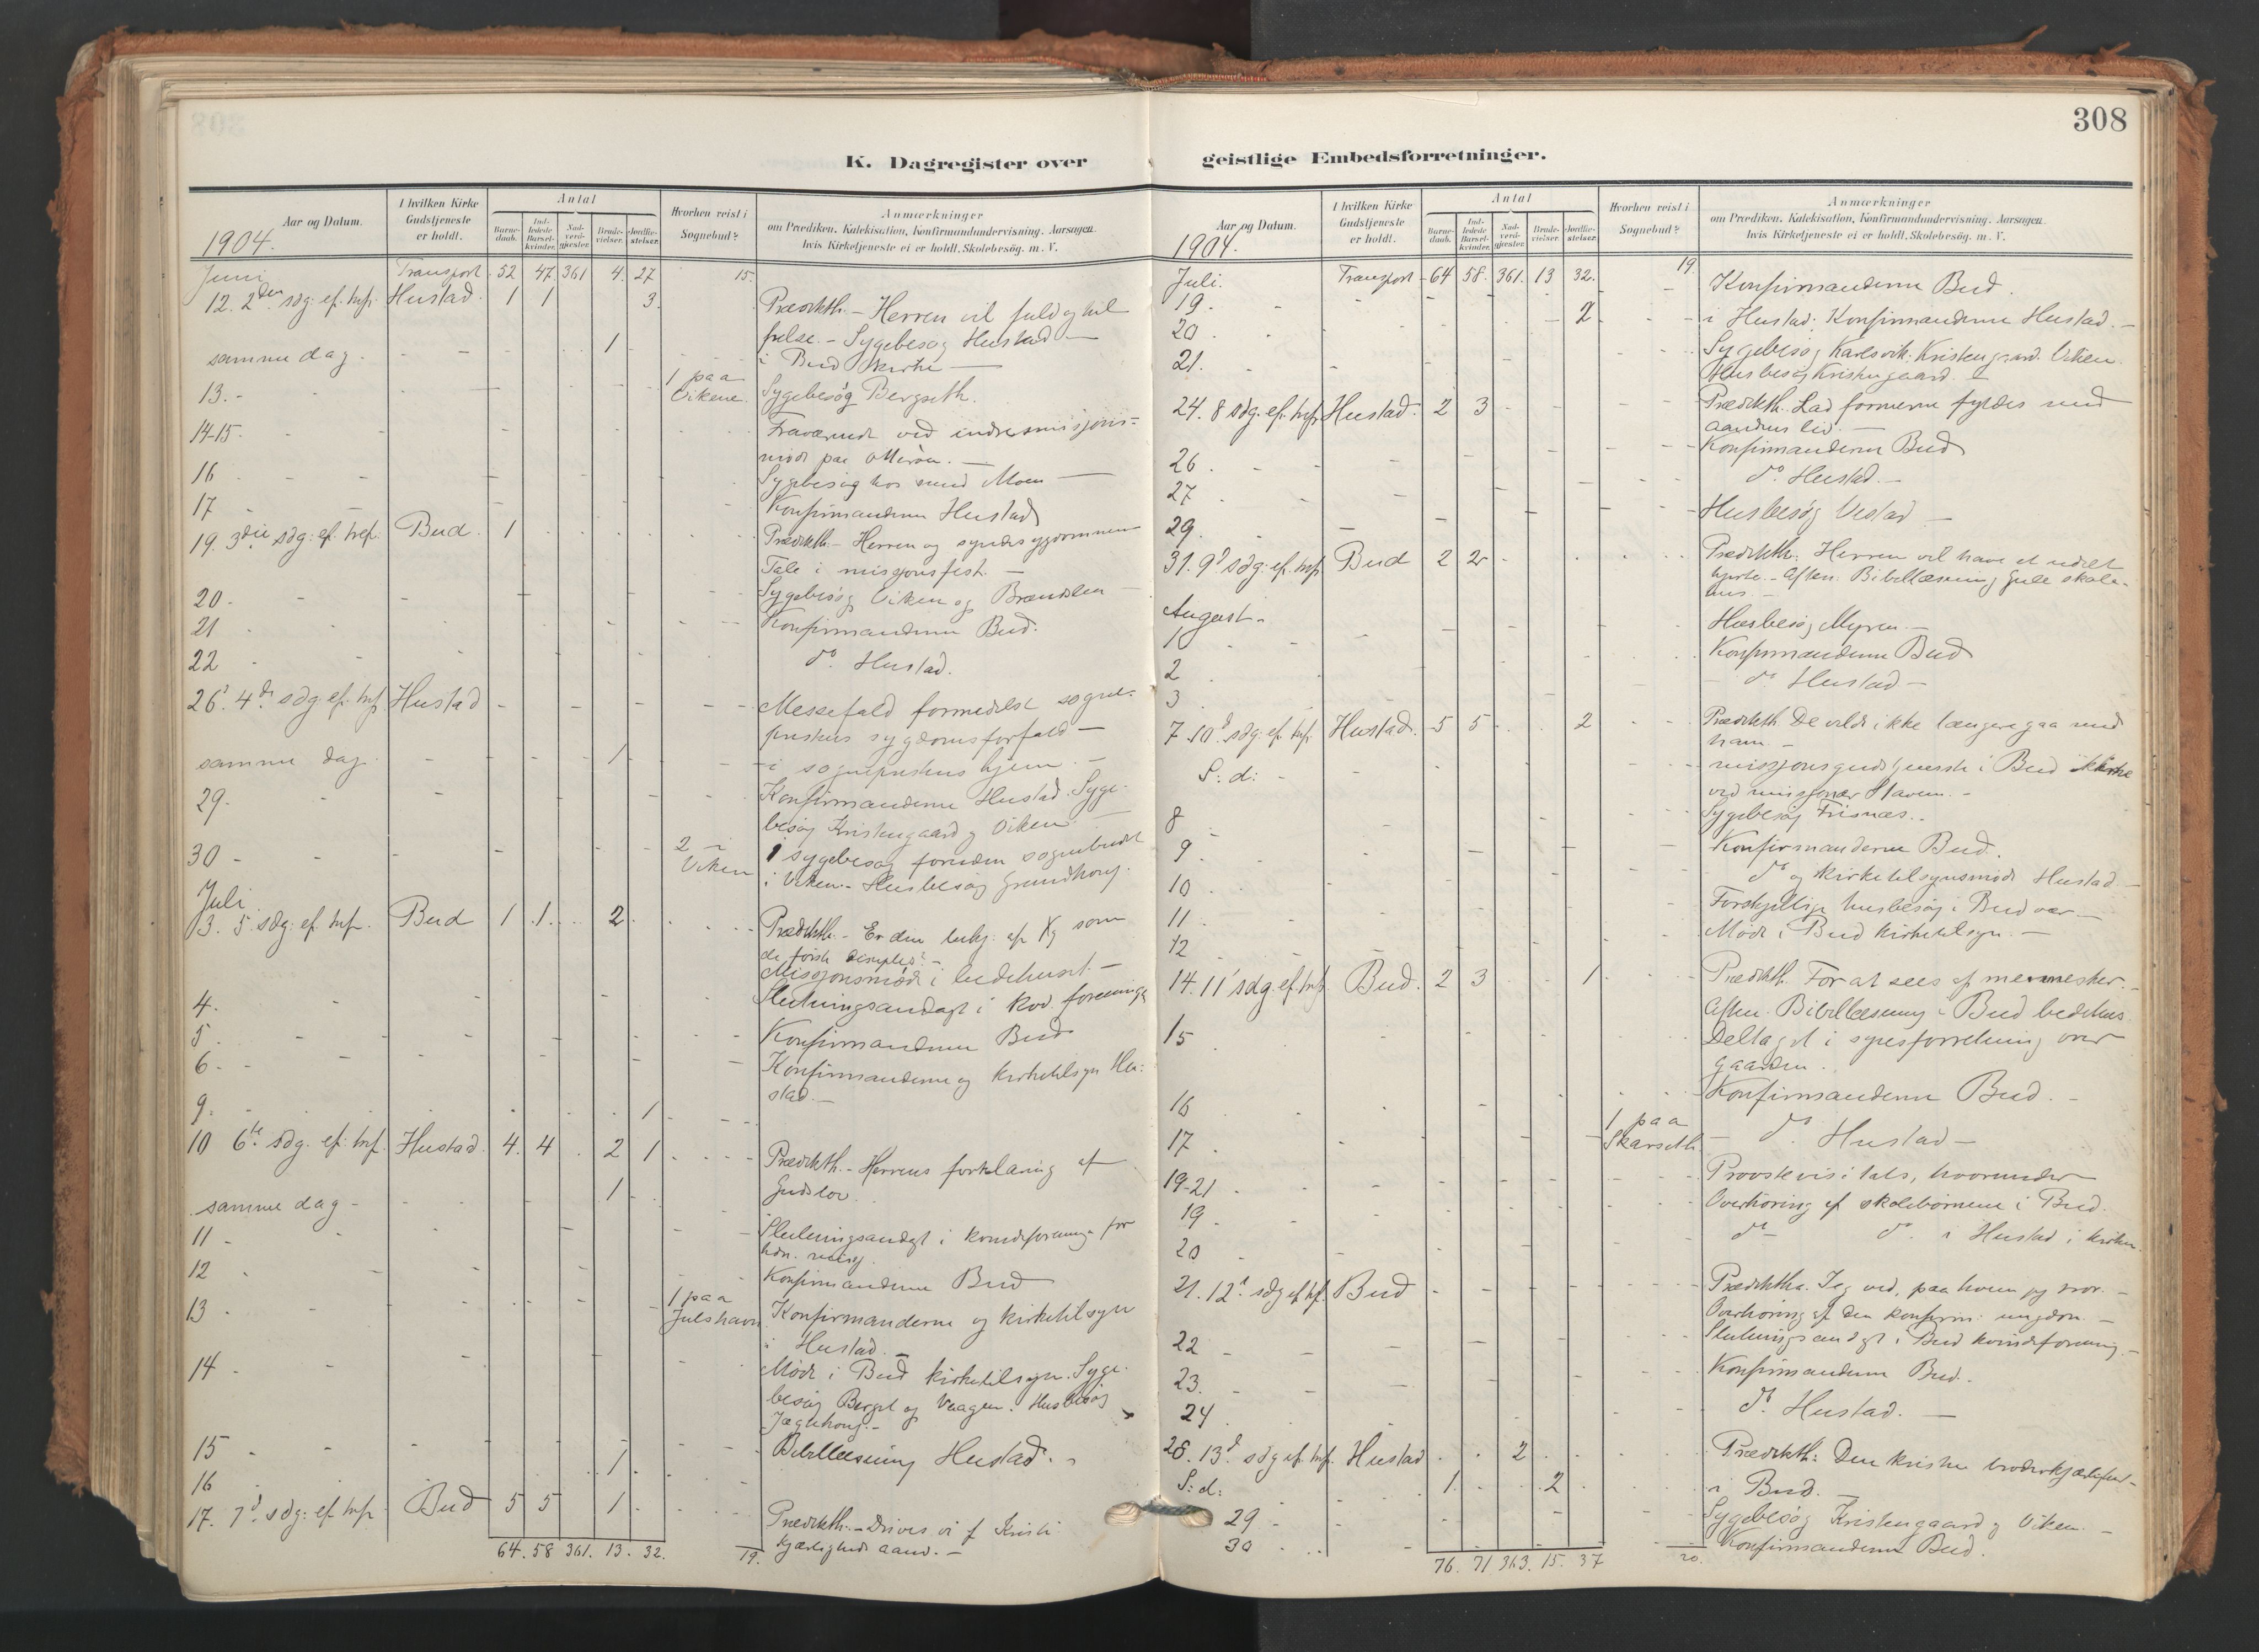 308
K. Dagregister over
geistlige Embedsforretninger.
Aar og Datum.
I hvilken Kirke Gudstjeneste er holdt.
Antal
Barne-daab.
Ind-ledede Barsel-kvinder.
Nad-verd-gjester.
Brude-vielser.
Jordfæ-stelser.
Hvorhen reist i Sognebud?
Anmærkninger
om Prædiken, Katekisation, Konfirmandundervisning. Aarsagen.
hvis Kirketjeneste ei er holdt. Skolebesøg. m. V.
1904.
Juni Transport 52 47 361 4. 27 15.
12. 2den sdg. ef. tref. Hustad. 1 1 3. Prædikth. - Herren vil fuld og hel
frelse. - Sygebesøg Hustad -
samme dag. 1 i Bud kirke -
13. 1 paa Vikene. Sygebesøg Bergseth.
14-15. Fraværende ved indremissjons=
møde paa Otterøen. -
16 Sygebesøg hos smed Moen -
17 Konfirmanderne Hustad
19. 3die sdg: ef. tref. Bud. 1 Prædikth. - Herren og syndesygdommen
Tale i missjonsfest. -
20. Sygebesøg Viken og
21 Konfirmanderne Bud.
22 do. Hustad.
26. 4de sdg. ef. tref. Hustad Messefald formedelst sogne-
prestens sygdomsforfald -
samme dag. 1 i sogneprestens hjem. -
29. Konfirmanderne Hustad. Syge-
besøg Kristengaard og Viken. -
30 - 2 i Viken 1 sygebesøg foruden sognebudet
i Viken. - Husbesøg Grundhaug.
Juli
3. 5. sdg. ef. tref. Bud 1 1 2 Prædikth. - Er den som
de første disiples? -
Missjonsmøde i bedehuset. -
4. Slutningsandagt i kvd. forening
5. Konfirmanderne Bud
6. Konfirmanderne og kirketilsyn Hu-
stad. -
9. 1
10 6te sdg. ef. tref. Hustad. 4. 4 2 1 Prædikth. - Herrens forklaring af
Guds lov.
samme dag - 1
11 - Slutningsandagt i kvindeforening for
12 Konfirmanderne Bud
13 1 paa Julshavn Konfirmanderne og kirketilsyn
i Hustad. -
14 Møde i Bud kirketilsyn. Syge-
besøg Berget og Vaagen. Husbesøg
Jægerhaug. -
15 Bibellæsning Hustad.
16 1
17. 7de sdg. ef. tref. Bud 5 5 1 Prædikth. - Drives vi af Kristi
kjærligheds aand. -
64. 58 361. 13. 32. 19.
Aar og Datum.
I hvilken Kirke Gudstjeneste er holdt.
Antal
Barne-daab.
Ind-ledede Barsel-kvinder.
Nad-verd-gjester.
Brude-vielser.
Jordfæ-stelser.
Hvorhen reist i Sognebud?
Anmærkninger
om Prædiken, Katekisation, Konfirmandundervisning. Aarsagen.
hvis Kirketjeneste ei er holdt. Skolebesøg. m. V.
1904.
Juli. Transport 64 58. 361. 13 32. 19.
19. Konfirmanderne Bud.
20 2 i Hustad. Konfirmanderne Hustad. -
21. Sygebesøg Karlsvik. Kristengaard. Viken.
Husbesøg Kristengaard. -
24. 8 sdg. ef. tref. Hustad. 2 3 Prædikth. Lad formerne fyldes med
aandens liv. -
26 Konfirmanderne Bud
27 do. Hustad. -
29 Husbesøg Vestad -
31. 9d sdg. ef. tref. Bud 2 2 Prædikth: Herren vil have et udelt
hjerte. - Aften. Bibellæsning Gule skole-
hus. -
August.
1 Husbesøg Myren. -
2 Konfirmanderne Bud
3 do Hustad -
7 10d sdg. ef. tref. Hustad. 5 5 2 Prædikth. De vilde ikke længere gaa med
ham -
S: d: missjonsgudstjeneste i Bud kirke
ved missjonær Haven. -
8 Sygebesøg Frisnæs. -
9 Konfirmanderne Bud.
10 do og kirketilsynsmøde Hustad -
11 Forskjellige husbesøg i Bud vær -
12 Møde i Bud kirketilsyn. -
14. 11' sdg. ef. tref. Bud. 2 3 1 Prædikth. For at sees af mennesker. -
Aften. Bibellæsning i Bud bedehus.
15 Deltaget i synsforretning over
gaarden.
16 Konfirmanderne Bud. -
17 1 paa Skarseth do. Hustad -
19-21 Provstevisitats, hvorunder
19 Overhøring af skolebørnene i Bud.
20 do do. i Hustad i kirken.
21. 12t sdg ef tref. Bud Prædikth. Jeg ved, paa hvem jeg tror. -
Overhøring af den konfirm: ungdom. -
22 Slutningsandagt i Bud kvindeforening. -
23. Konfirmanderne Bud.
24 do. Hustad. -
28. 13d sdg ef. tref. Hustad 2 Prædikth: Den kristne broderkjærlighed -
S: d: 1 2 i Bud. -
29 Sygebesøg Kristengaard og Viken. -
30 Konfirmanderne Bud.
76. 71 363. 15. 37 20.